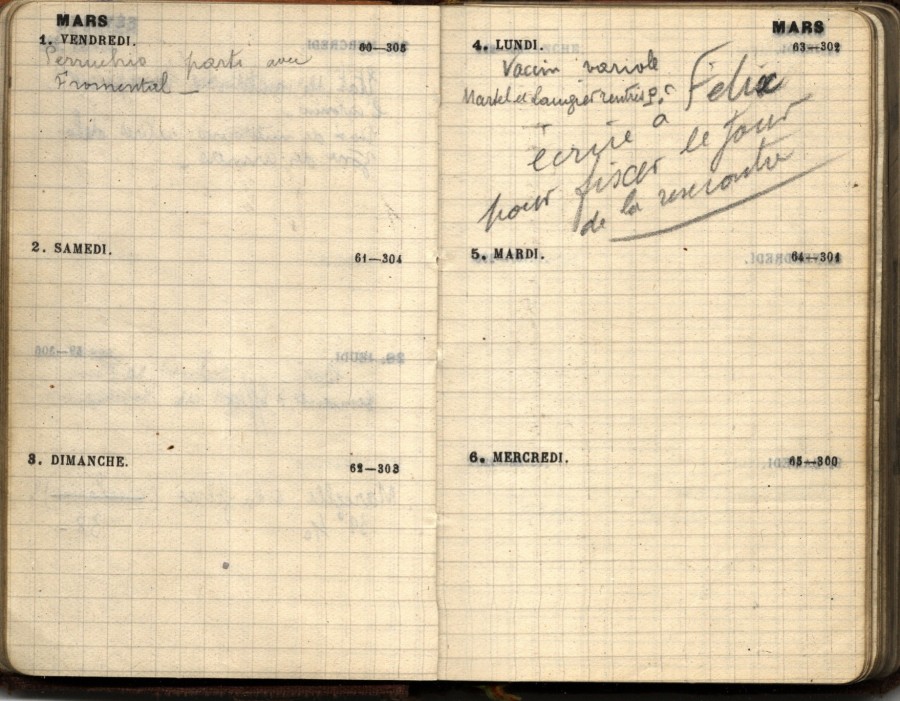 MARS
1. VENDREDI. 60—305
Perruchio parti avec
Fromental —
2. SAMEDI. 61—304
3. DIMANCHE. 62—303
MARS
4. LUNDI. 63—302
Vaccin variole
Martel et Laugier rentrés
Felix
écrire a
pour fixer le jour
de la rencontre
5. MARDI. 64—301
6. MERCREDI. 65—300